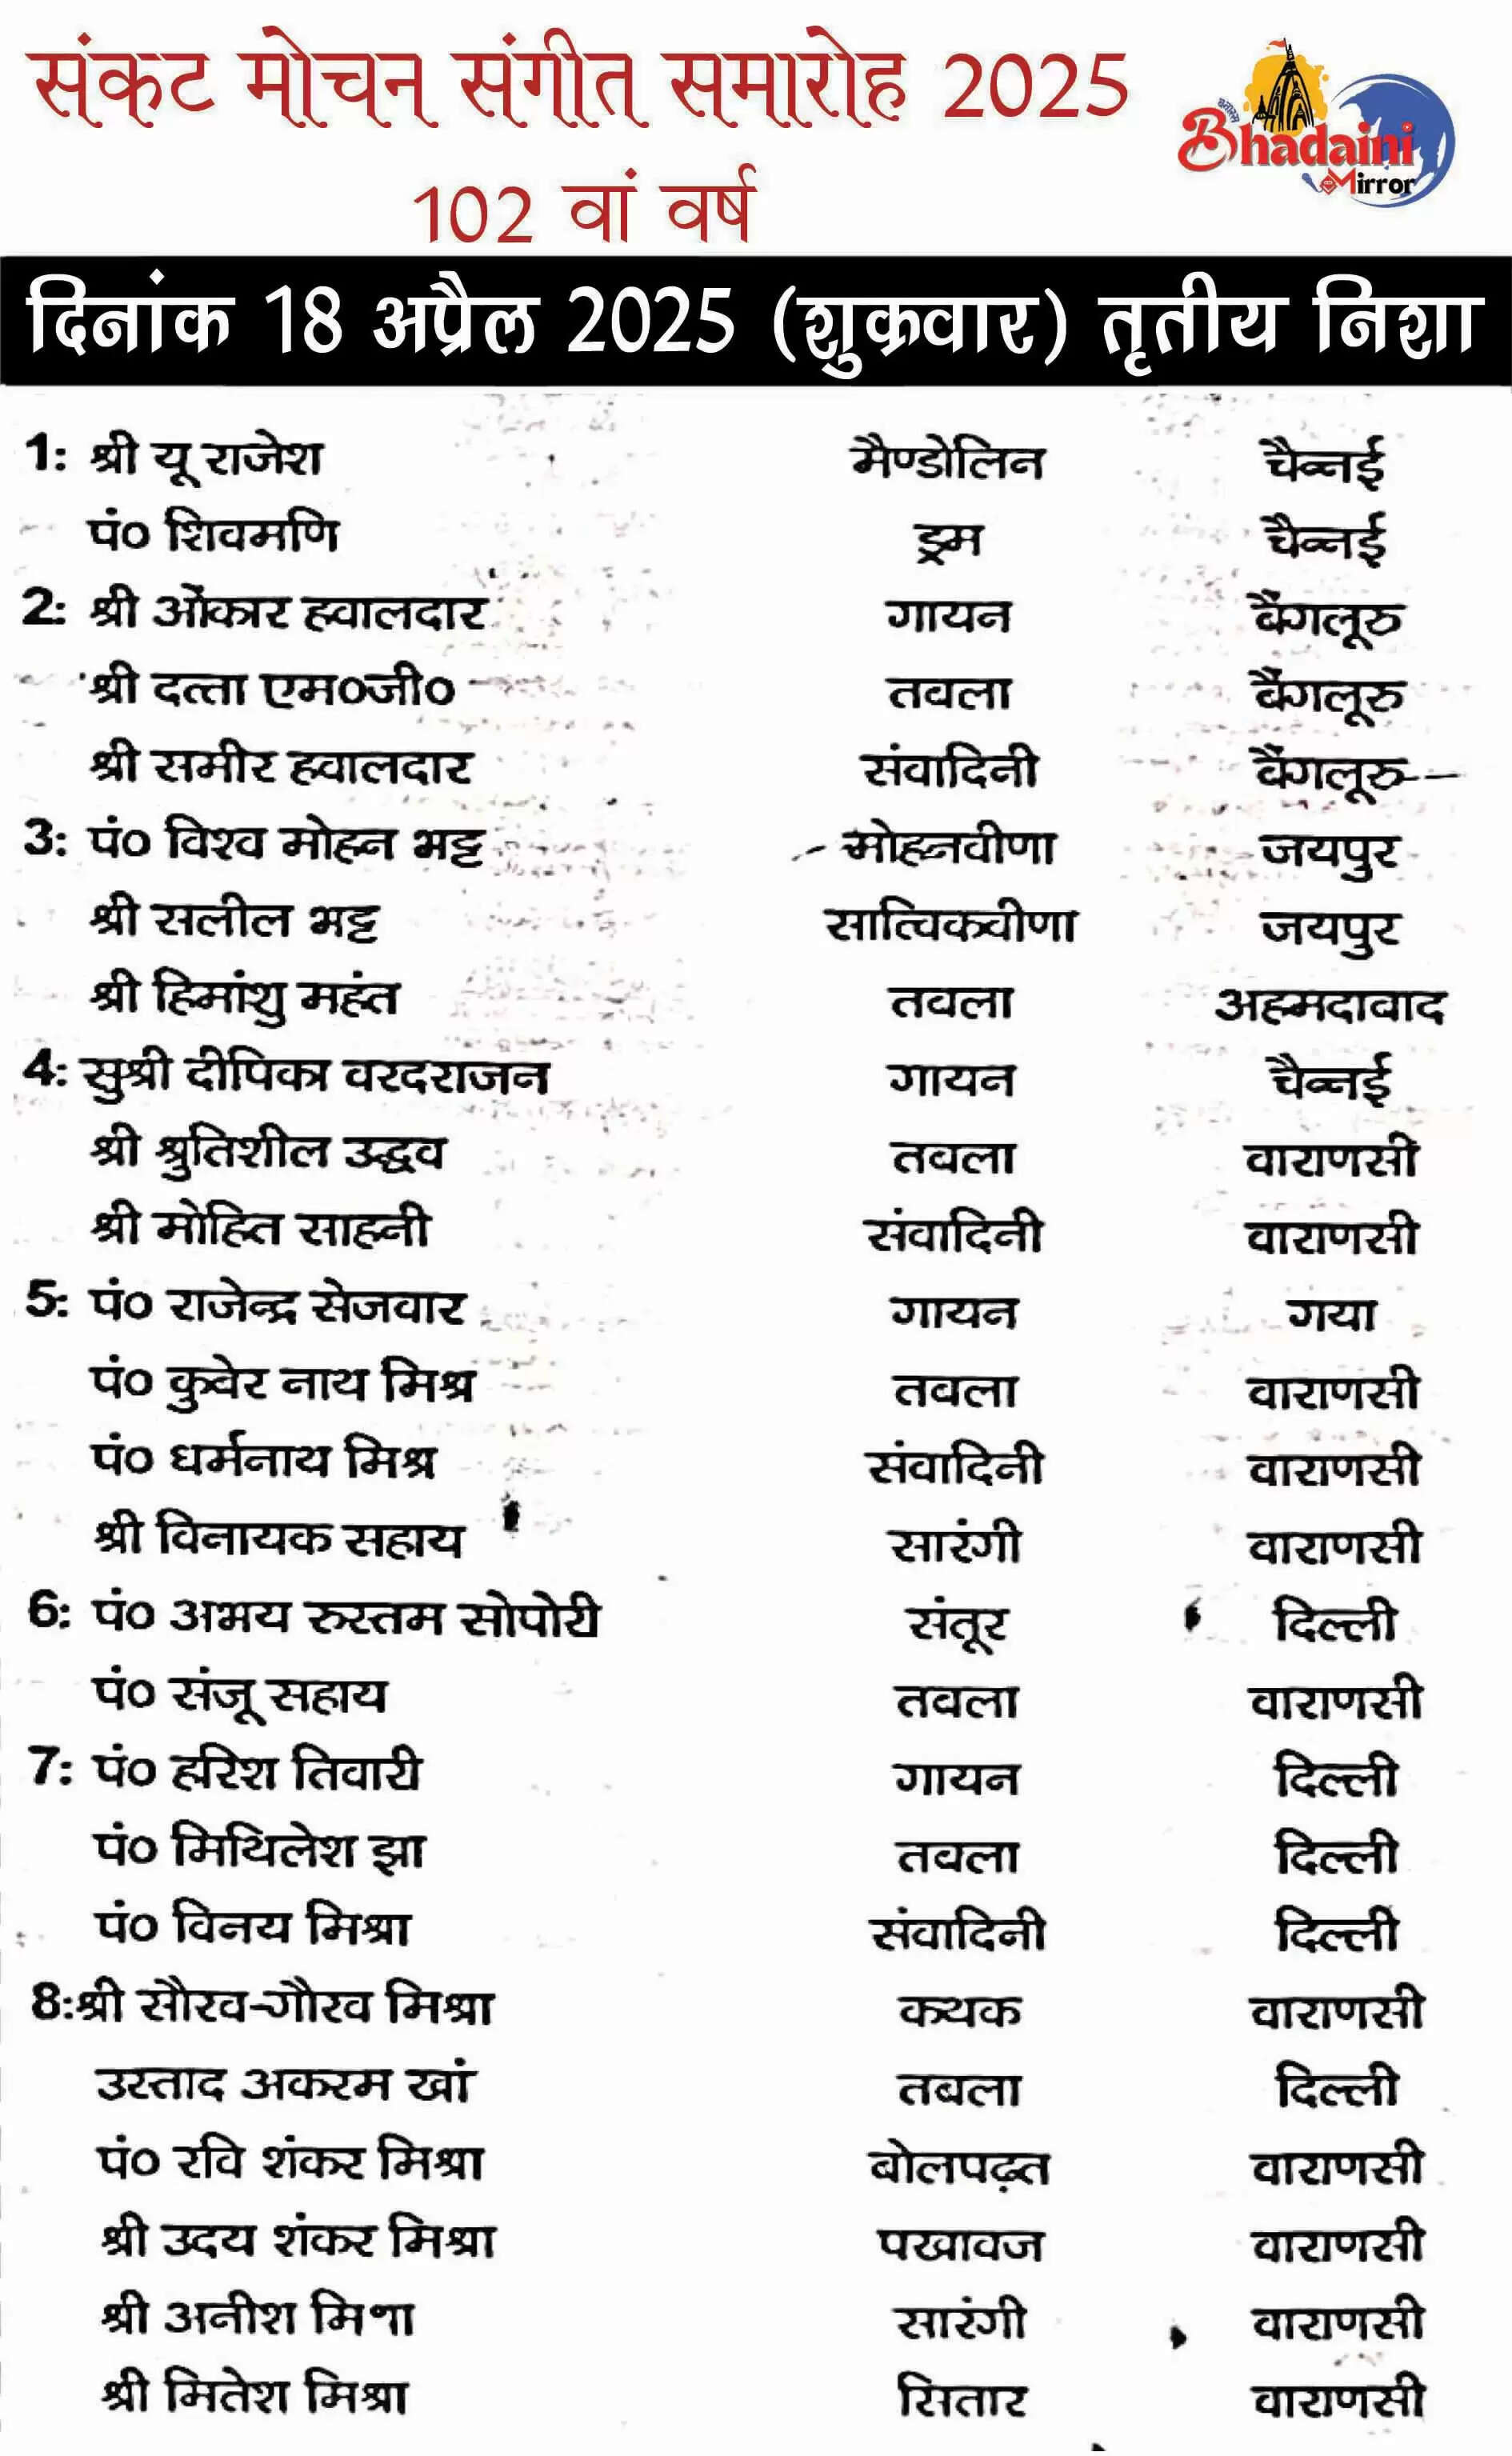 संकट मोचन संगीत समारोह 2025
102 वां वर्ष
Bhadaini
Mirror
दिनांक 18 अप्रैल 2025 (शुक्रवार) तृतीय निशा
1: श्री यू राजेश मैण्डोलिन चैन्नई
पं० शिवमणि ड्रम चैन्नई
2: श्री ओंकार हवालदार गायन बैंगलूरु
श्री दत्ता एम०जी० तबला बैंगलूरु
श्री समीर हवालदार संवादिनी बैंगलूरु
3: पं० विश्व मोहन भट्ट मोहनवीणा जयपुर
श्री सलील भट्ट सात्विकवीणा जयपुर
श्री हिमांशु महंत तबला अहमदाबाद
4: सुश्री दीपिका वरदराजन गायन चैन्नई
श्री श्रुतिशील उद्धव तबला वाराणसी
श्री मोहित साहनी संवादिनी वाराणसी
5: पं० राजेन्द्र सेजवार गायन गया
पं० कुबेर नाथ मिश्र तबला वाराणसी
पं० धर्मनाथ मिश्र संवादिनी वाराणसी
श्री विनायक सहाय सारंगी वाराणसी
6: पं० अभय रुस्तम सोपोरी संतूर दिल्ली
पं० संजू सहाय तबला वाराणसी
7: पं० हरिश तिवारी गायन दिल्ली
पं० मिथिलेश झा तबला दिल्ली
पं० विनय मिश्रा संवादिनी दिल्ली
8:श्री सौरव-गौरव मिश्रा कथक वाराणसी
उस्ताद अकरम खां तबला दिल्ली
पं० रवि शंकर मिश्रा बोलपढ़त वाराणसी
श्री उदय शंकर मिश्रा पखावज वाराणसी
श्री अनीश मिश्रा सारंगी वाराणसी
श्री मितेश मिश्रा सितार वाराणसी